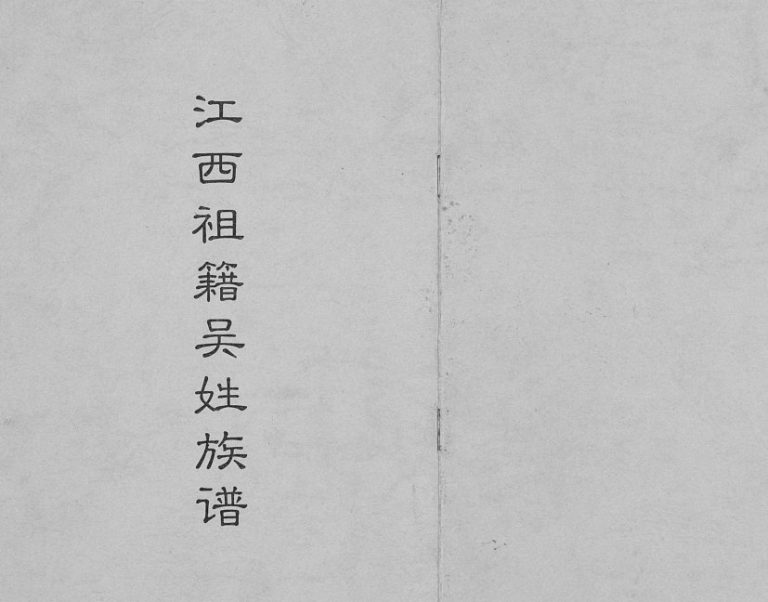 江西祖籍吴姓族谱